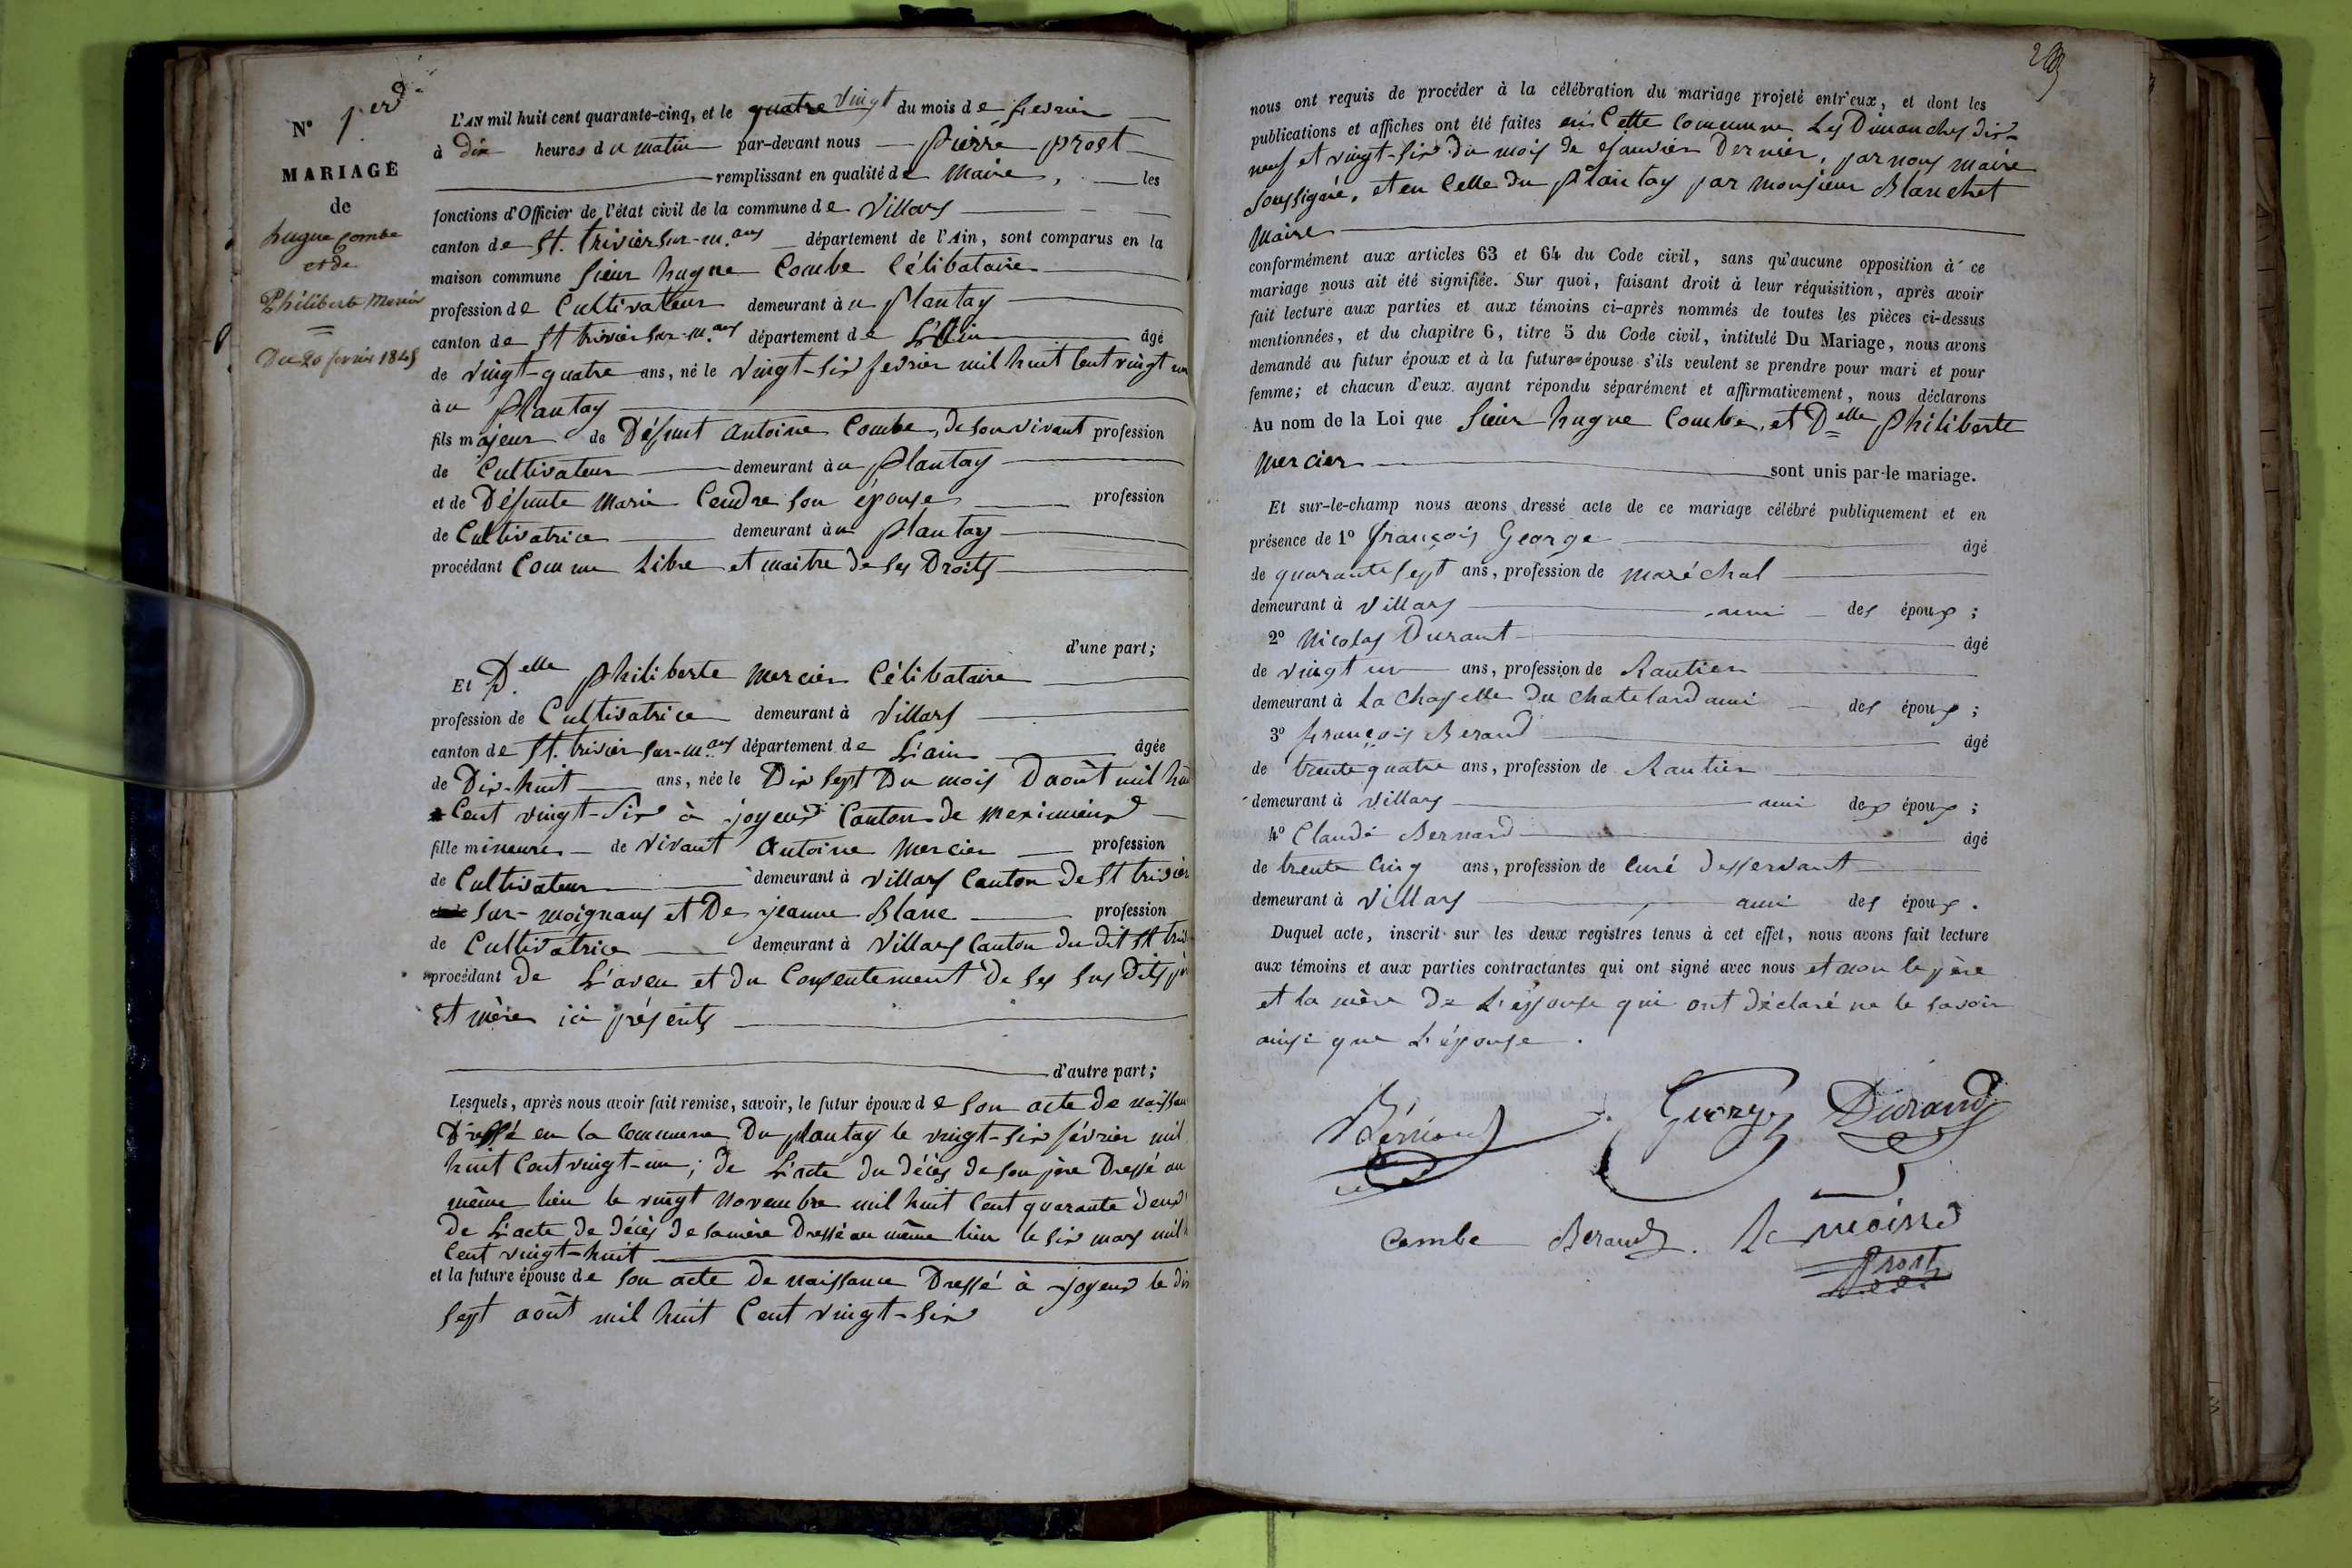 N° 1er
MARIAGE
de
hugue Combe
et de
Philiberte Mercier
Du 20 fevrier 1845
L'AN mil huit cent quarante-cinq, et le quatre vingt du mois de fevrier
à dix heures du matin par-devant nous Pierre prost
remplissant en qualité de Maire, les
fonctions d'Officier de l'état civil de la commune de Villars
canton de St. trivier sur-m.ans département de l'Ain, sont comparus en la
maison commune Sieur hugue Combe Célibataire
profession de Cultivateur demeurant à u plantay
canton de St trivier sur-m.ans département de L'Ain âgé
de vingt-quatre ans, né le vingt-six fevrier mil huit Cent vingt un
à u plantay
fils majeur de Défunt Antoine Combe, de son vivant profession
de Cultivateur demeurant à u plantay
et de Défunte Marie Cendre son épouse profession
de Cultivatrice demeurant à u plantay
procédant Comme Libre et maitre de ses Droits
d'une part;
Et Delle philiberte Mercier Célibataire
profession de Cultivatrice demeurant à Villars
canton de St. trivier sur-m.ans département de L'ain âgée
de Dix-huit ans, née le Dix sept Du mois Daoût mil hui
Cent vingt-Six à joyeux Canton de meximieux
fille mineure de vivant Antoine Mercier profession
de Cultivateur demeurant à Villars Canton de St trivier
sur-moignans et De jeanne Blanc profession
de Cultivatrice demeurant à Villars Canton du dit St triv
procédant de L'aveu et du Consentement de ses sus dits pè
Et mère ici présents
d'autre part;
Lesquels, après nous avoir fait remise, savoir, le futur époux de son acte de naissan
Dressé en la Commune Du plantay le vingt-six février mil
huit Cent vingt-un; de L'acte du décès de son père Dressé au
même lieu le vingt Novembre mil huit Cent quarante deux
de L'acte de décès de sa mère Dressé au même lieu le six mars mil h
Cent vingt-huit
et la future épouse de son acte de naissance Dressé à joyeux le dix
sept août mil huit Cent vingt-six
nous ont requis de procéder à la célébration du mariage projeté entr'eux, et dont les
publications et affiches ont été faites en Cette Commune Les Dimanches dix-
neuf et vingt-six du mois de Janvier Dernier, par nous maire
Soussigné, et en Celle du plantay par Monsieur Blanchet
Maire
conformément aux articles 63 et 64 du Code civil, sans qu'aucune opposition à ce
mariage nous ait été signifiée. Sur quoi, faisant droit à leur réquisition, après avoir
fait lecture aux parties et aux témoins ci-après nommés de toutes les pièces ci-dessus
mentionnées, et du chapitre 6, titre 5 du Code civil, intitulé Du Mariage, nous avons
demandé au futur époux et à la future épouse s'ils veulent se prendre pour mari et pour
femme; et chacun d'eux ayant répondu séparément et affirmativement, nous déclarons
Au nom de la Loi que Sieur hugue Combe, et Delle philiberte
Mercier sont unis par le mariage.
Et sur-le-champ nous avons dressé acte de ce mariage célébré publiquement et en
présence de 1° françois George âgé
de quarante sept ans, profession de maréchal
demeurant à Villars ami des époux;
2° Nicolas Durant âgé
de vingt un ans, profession de Rantier
demeurant à La Chapelle Du Chatelard ami des époux;
3° françois Beraud âgé
de trente quatre ans, profession de Rantier
demeurant à Villars ami des époux;
4° Claude Bernard âgé
de trente Cinq ans, profession de Curé desservant
demeurant à Villars ami des époux.
Duquel acte, inscrit sur les deux registres tenus à cet effet, nous avons fait lecture
aux témoins et aux parties contractantes qui ont signé avec nous et non le père
et la mère de L'épouse qui ont déclaré ne le savoir
ainsi que L'épouse.
Bernard George Durand
Combe Beraud. le maire
Prost